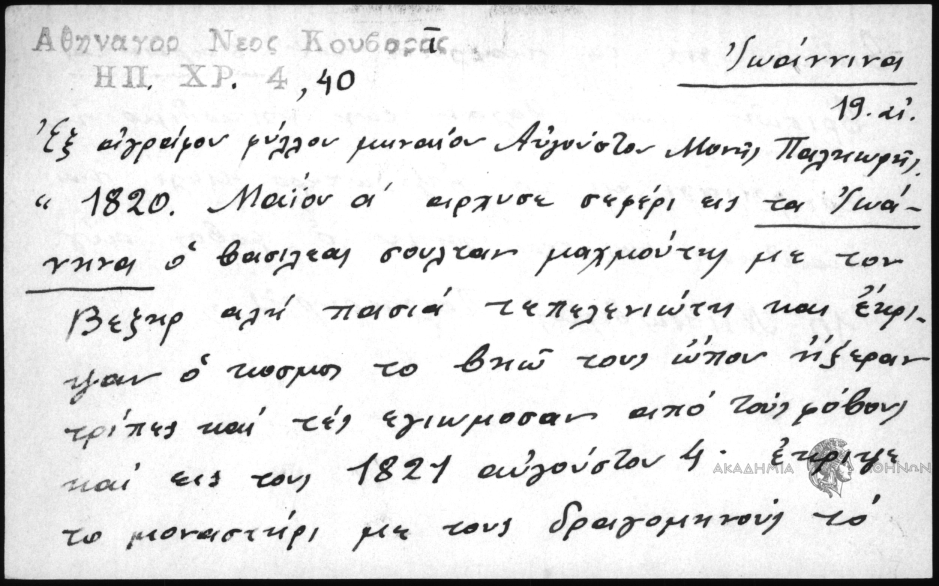 Αθηναγορ Νεος Κουβαρᾶς
ΗΠ. ΧΡ. 4, 40
Ἰωάννινα
19. αἰ.
Ἐξ ἀγράφου φύλλου μηναίου Αὐγούστου Μονῆς Παληωρῆς.
" 1820. Μαΐου α΄ αρχυσε σεφέρι εις τα Ἰωά-
νηνα ὁ βασιλεας σουλταν μαχμούτης με τον
Βεζηρ αλή πασιά τεπελενιώτη και ἔκρι-
ψαν ὁ κοσμος το βηῶ τους ὡπου ἠξεραν
τρίπες καί τές εγιωμοσαν από τούς φόβους
καί εις τους 1821 αὐγούστου 4· ἐκριψε
το μοναστήρι με τους δραγομηνούς τό
ΑΚΑΔΗΜΙΑ ΑΘΗΝΩΝ